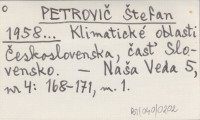 PETROVIČ Štefan
1958... Klimatické oblasti
Československa, časť Slo-
vensko. — Naša Veda 5,
nr 4: 168-171, m. 1.